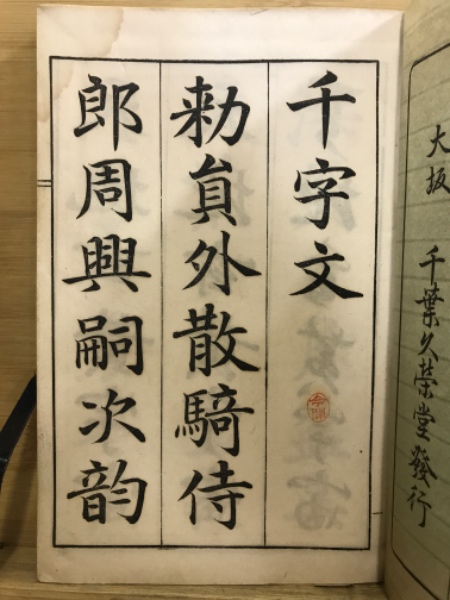 大坂 千葉久榮堂發行
千字文
勅貟外散騎侍
郎周興嗣次韵